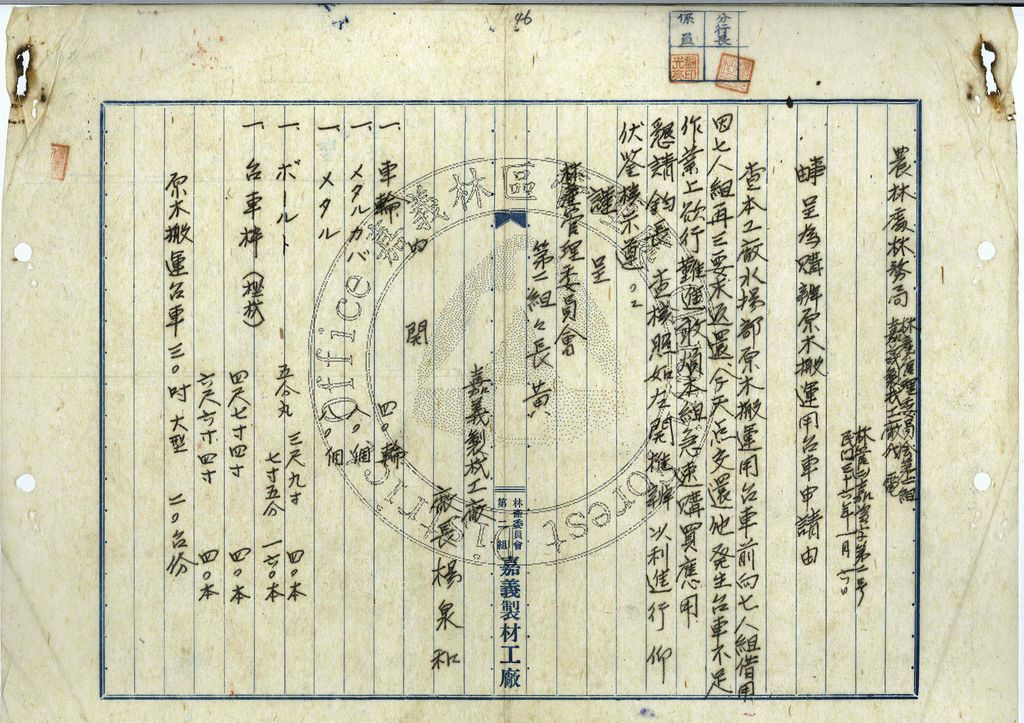 46
分行長
係員
農林處林務局 林產管理委員會第二組 嘉義製材工廠 代電
民国三十六年一月 日
事由 呈為購辦原木搬運用台車申請由
查本工廠水場部原木搬運用台車前向七人組借用
因七人組再三要求返還今天点交還他發生台車不足
作業上欲行難進敢煩本組急速購買應用
懇請鈞長 查核照如左開推辦以利進行仰
伏鉴核示遵
謹呈
林產管理委員會
第二組々長 黃
嘉義製材工廠
廠長 楊泉和
林產委員會
第二組
嘉義製材工廠
內開
一、車輪 四〇輪
一、メタルカバ 八〇個
一、メタル 八〇個
一、ボールト 五分丸 三尺九寸 四〇本
七寸五分 一六〇本
一、台車枠 四尺七寸四寸 四〇本
六尺六寸四寸 四〇本
原木搬運台車三〇吋大型 二〇台份
嘉義林區
Forest District Office